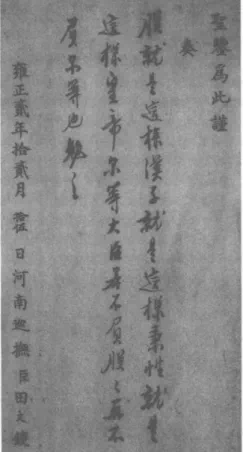 聖鑒為此謹
奏
朕就是這樣漢子就是這樣秉性就是
這樣皇帝尔等大臣若不負朕々再不
負尔等也勉之
雍正貳年拾貳月 拾伍 日河南巡撫臣田文鏡